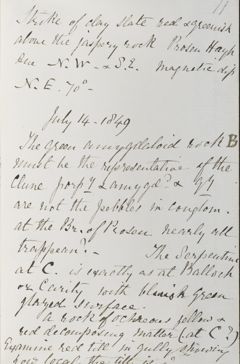 11
Strike of clay slate red & greenish
above the jaspery rock Prosen Haugh
Due N.W. & S.E. magnetic dip
N.E. 70°
July 14 - 1849
The green amygdaloid rock B
must be the representative of the
Clune porp? & amygd? &
are not the pebbles in conglom.
at the Br. of Prosen nearly all
trappean? - The Serpentine
at C. is exactly as at Balloch
or Carity with blackish green
glazed surface.
a rock of ochreous yellow &
red decomposing matter (at C?)
Examine red till in gully shewing
how local the till is